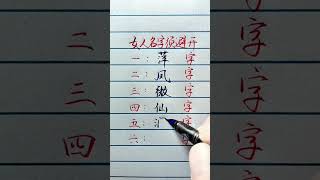 女人名字须避开
一：萍 字
二：凤 字
三：微 字
四：仙 字
五： 字
六： 字